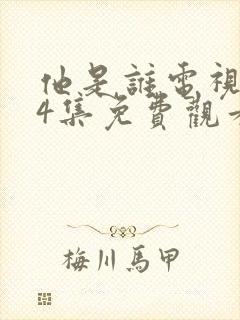 他是誰電視
4集免費觀
梅川馬甲